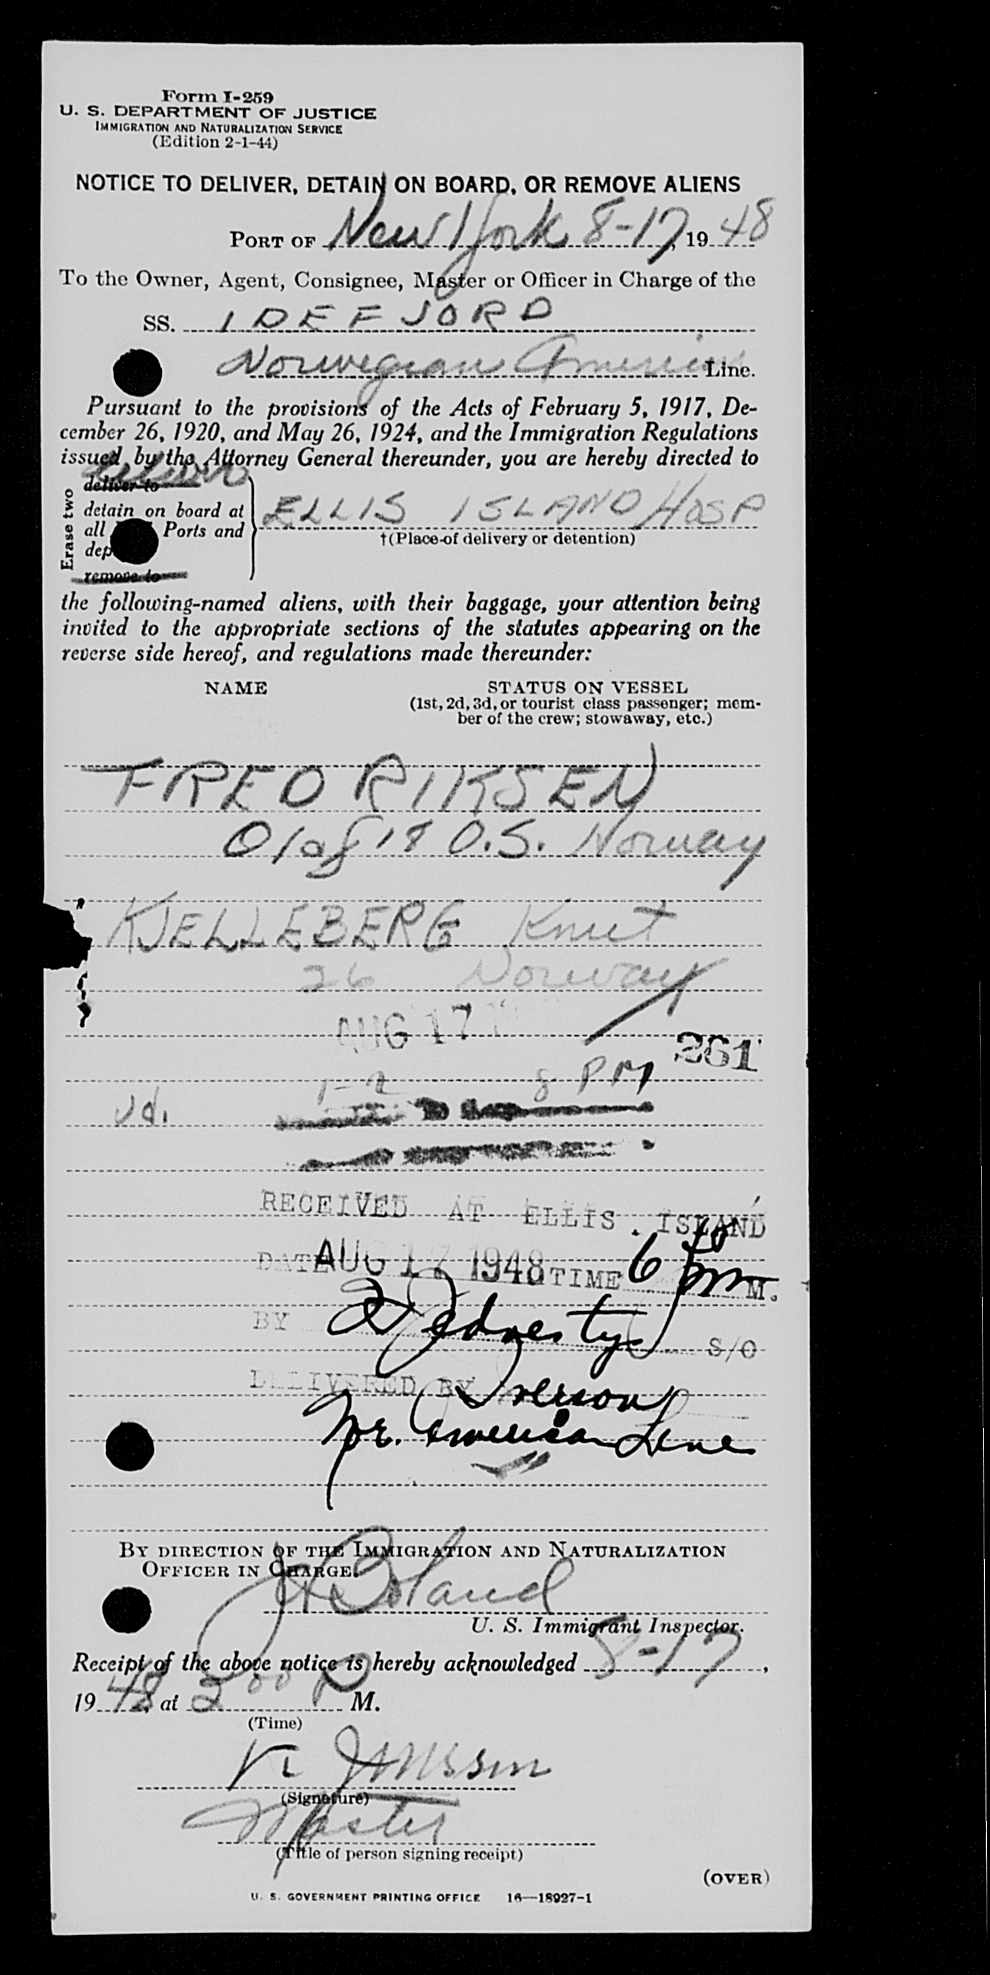 Form I-259
U. S. DEPARTMENT OF JUSTICE
IMMIGRATION AND NATURALIZATION SERVICE
(Edition 2-1-44)
NOTICE TO DELIVER, DETAIN ON BOARD, OR REMOVE ALIENS
PORT OF New York 8-17, 19 48
To the Owner, Agent, Consignee, Master or Officer in Charge of the
SS. IDEFJORD
Norwegian America Line.
Pursuant to the provisions of the Acts of February 5, 1917, De-
cember 26, 1920, and May 26, 1924, and the Immigration Regulations
issued by the Attorney General thereunder, you are hereby directed to
Erase two
deliver to
detain on board at
all Ports and
dep
remove to
ELLIS ISLAND HOSP
†(Place of delivery or detention)
the following-named aliens, with their baggage, your attention being
invited to the appropriate sections of the statutes appearing on the
reverse side hereof, and regulations made thereunder:
NAME STATUS ON VESSEL
(1st, 2d, 3d, or tourist class passenger; mem-
ber of the crew; stowaway, etc.)
FREDRIKSEN
Olaf 18 O.S. Norway
KJELLEBERG Knut
26 Norway
AUG 17
261
1-2 8 PM
RECEIVED AT ELLIS ISLAND
DATE AUG 17 1948 TIME 6 50 pm M.
BY S/O
DELIVERED BY Iverson
Nor. American Line
BY DIRECTION OF THE IMMIGRATION AND NATURALIZATION
OFFICER IN CHARGE.
J Boland
U. S. Immigrant Inspector.
Receipt of the above notice is hereby acknowledged 8-17,
19 48 at 5 00 P M.
(Time)
(Signature)
Master
(Title of person signing receipt)
(OVER)
U. S. GOVERNMENT PRINTING OFFICE 16—18927-1